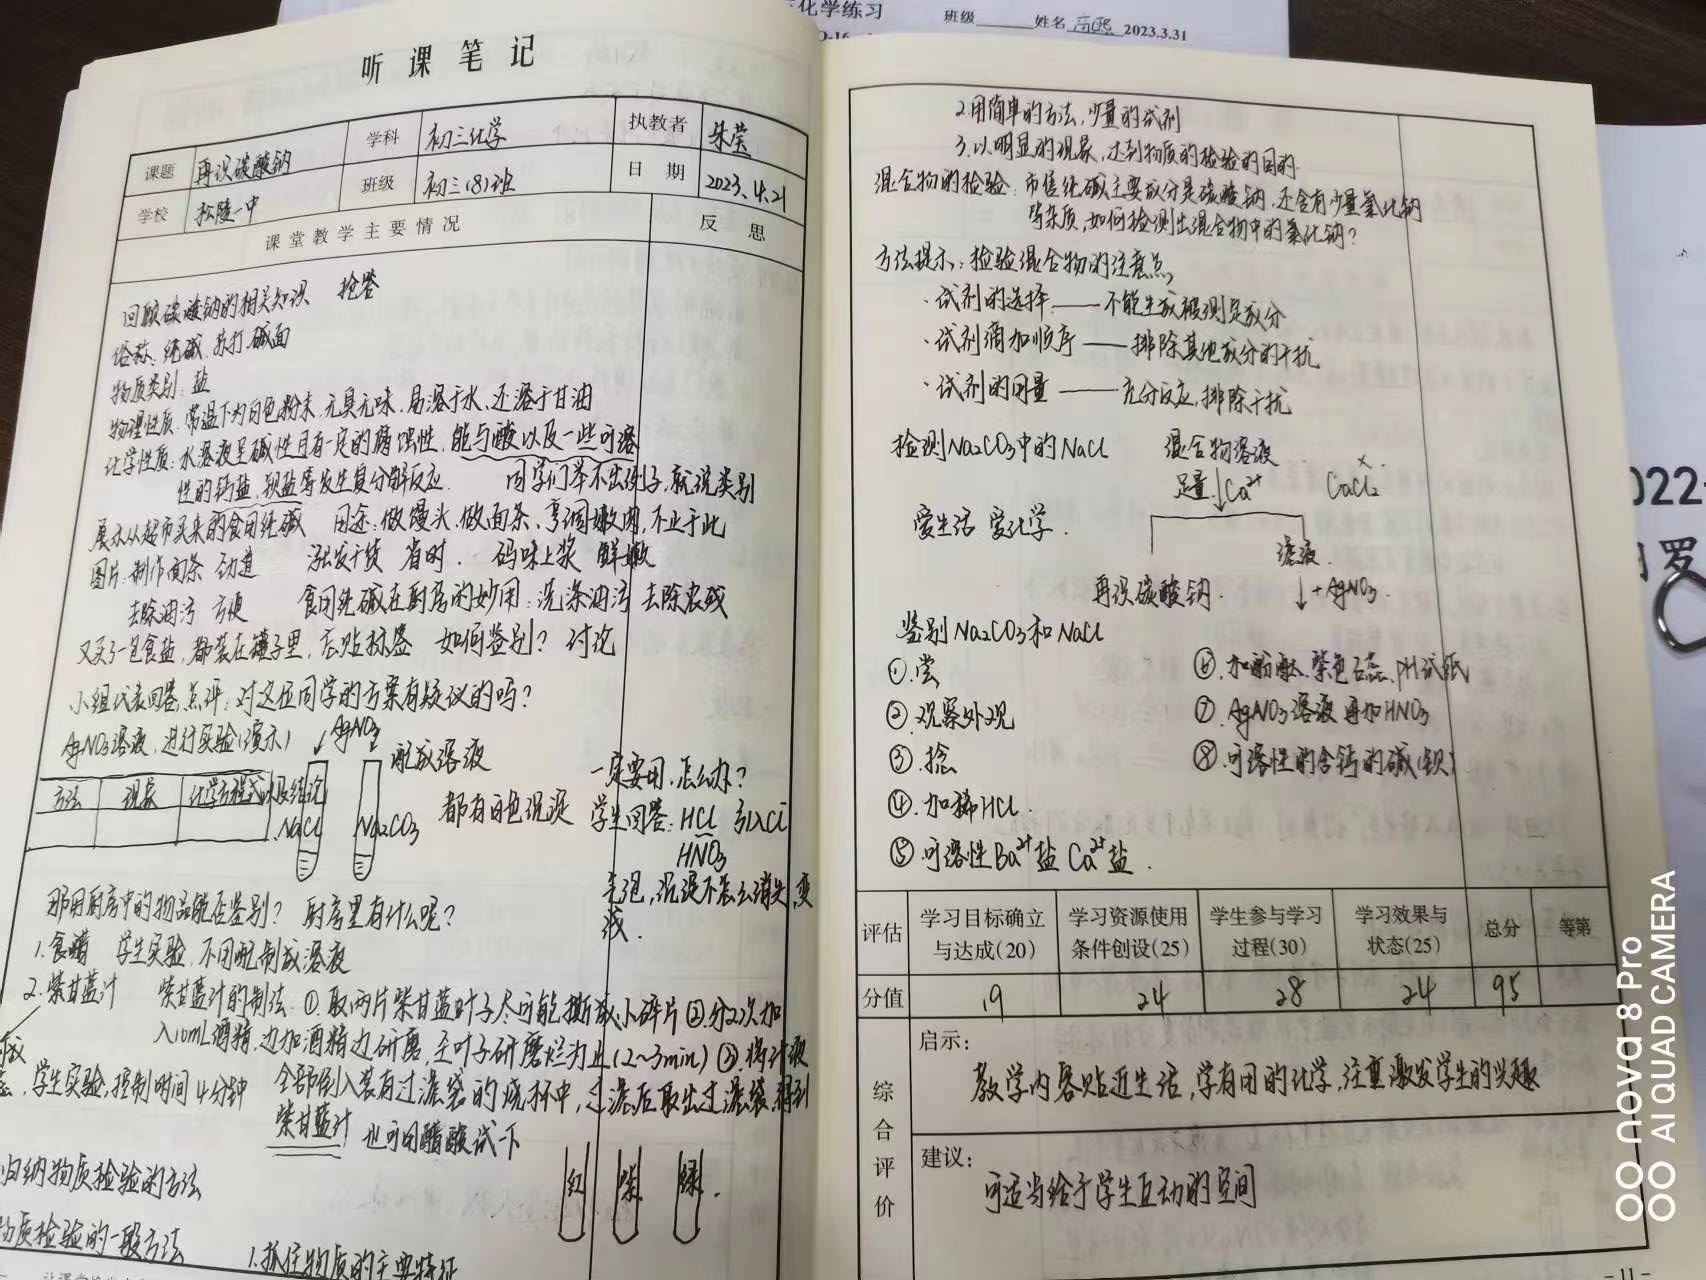 化学练习
班级 姓名 高熙 2023.3.31
听课笔记
课题 再识碳酸钠 学科 初三化学 执教者 朱莹
学校 松陵一中 班级 初三(8)班 日期 2023.4.21
课堂教学主要情况 反思
回顾碳酸钠的相关知识 抢答
俗称:纯碱、苏打、碱面
物质类别:盐
物理性质:常温下为白色粉末,无臭无味,易溶于水,还溶于甘油
化学性质:水溶液呈碱性且有一定的腐蚀性,能与酸以及一些可溶
性的钙盐、钡盐等发生复分解反应. 同学们举不出例子,就说类别
展示从超市买来的食用纯碱 用途:做馒头,做面条,烹调嫩肉,不止于此
图片:制作面条 劲道 涨发干货 省时. 码味上浆 鲜嫩
去除油污 方便 食用纯碱在厨房的妙用:洗涤油污 去除农残
又买了一包食盐,都装在罐子里,忘贴标签 如何鉴别? 讨论
小组代表回答,点评:对这位同学的方案有疑议的吗?
AgNO₃溶液,进行实验(演示) AgNO₃
配成溶液
方法 现象 化学方程式 结论
NaCl Na₂CO₃ 都有白色沉淀
一定要用,怎么办?
学生回答:HCl 引入Cl⁻
HNO₃
气泡,沉淀不怎么消失,变
浅.
那用厨房中的物品能否鉴别? 厨房里有什么呢?
1.食醋 学生实验,不用配制成溶液
2.紫甘蓝汁 紫甘蓝汁的制法:①取两片紫甘蓝叶子尽可能撕成小碎片②分2次加
入10mL酒精,边加酒精边研磨,至叶子研磨烂为止(2~3min)③将汁液
学生实验,控制时间4分钟 全部倒入装有过滤袋的烧杯中,过滤后取出过滤袋,得到
紫甘蓝汁 也可用醋酸试一下
红 紫 绿.
归纳物质检验的方法
物质检验的一般方法 1.抓住物质的主要特征
2.用简单的方法,少量的试剂
3.以明显的现象,达到物质的检验的目的.
混合物的检验:市售纯碱主要成分是碳酸钠,还含有少量氯化钠
等杂质,如何检测出混合物中的氯化钠?
方法提示:检验混合物的注意点
·试剂的选择——不能生成被测定成分
·试剂滴加顺序——排除其他成分的干扰
·试剂的用量——充分反应,排除干扰
检测Na₂CO₃中的NaCl 混合物溶液 ×.
足量↓Ca²⁺ CaCl₂
爱生活 爱化学.
溶液.
再识碳酸钠. ↓+AgNO₃.
鉴别Na₂CO₃和NaCl
①.尝 ⑥.加酚酞、紫色石蕊、pH试纸
②.观察外观 ⑦.AgNO₃溶液再加HNO₃
③.捻 ⑧.可溶性的含钙的碱(钡)
④.加稀HCl.
⑤.可溶性Ba²⁺盐 Ca²⁺盐.
评估 学习目标确立与达成(20) 学习资源使用条件创设(25) 学生参与学习过程(30) 学习效果与状态(25) 总分 等第
分值 19 24 28 24 95
综合评价
启示:
教学内容贴近生活,学有用的化学,注重激发学生的兴趣
建议:
可适当给于学生互动的空间
-11-
nova 8 Pro
AI QUAD CAMERA